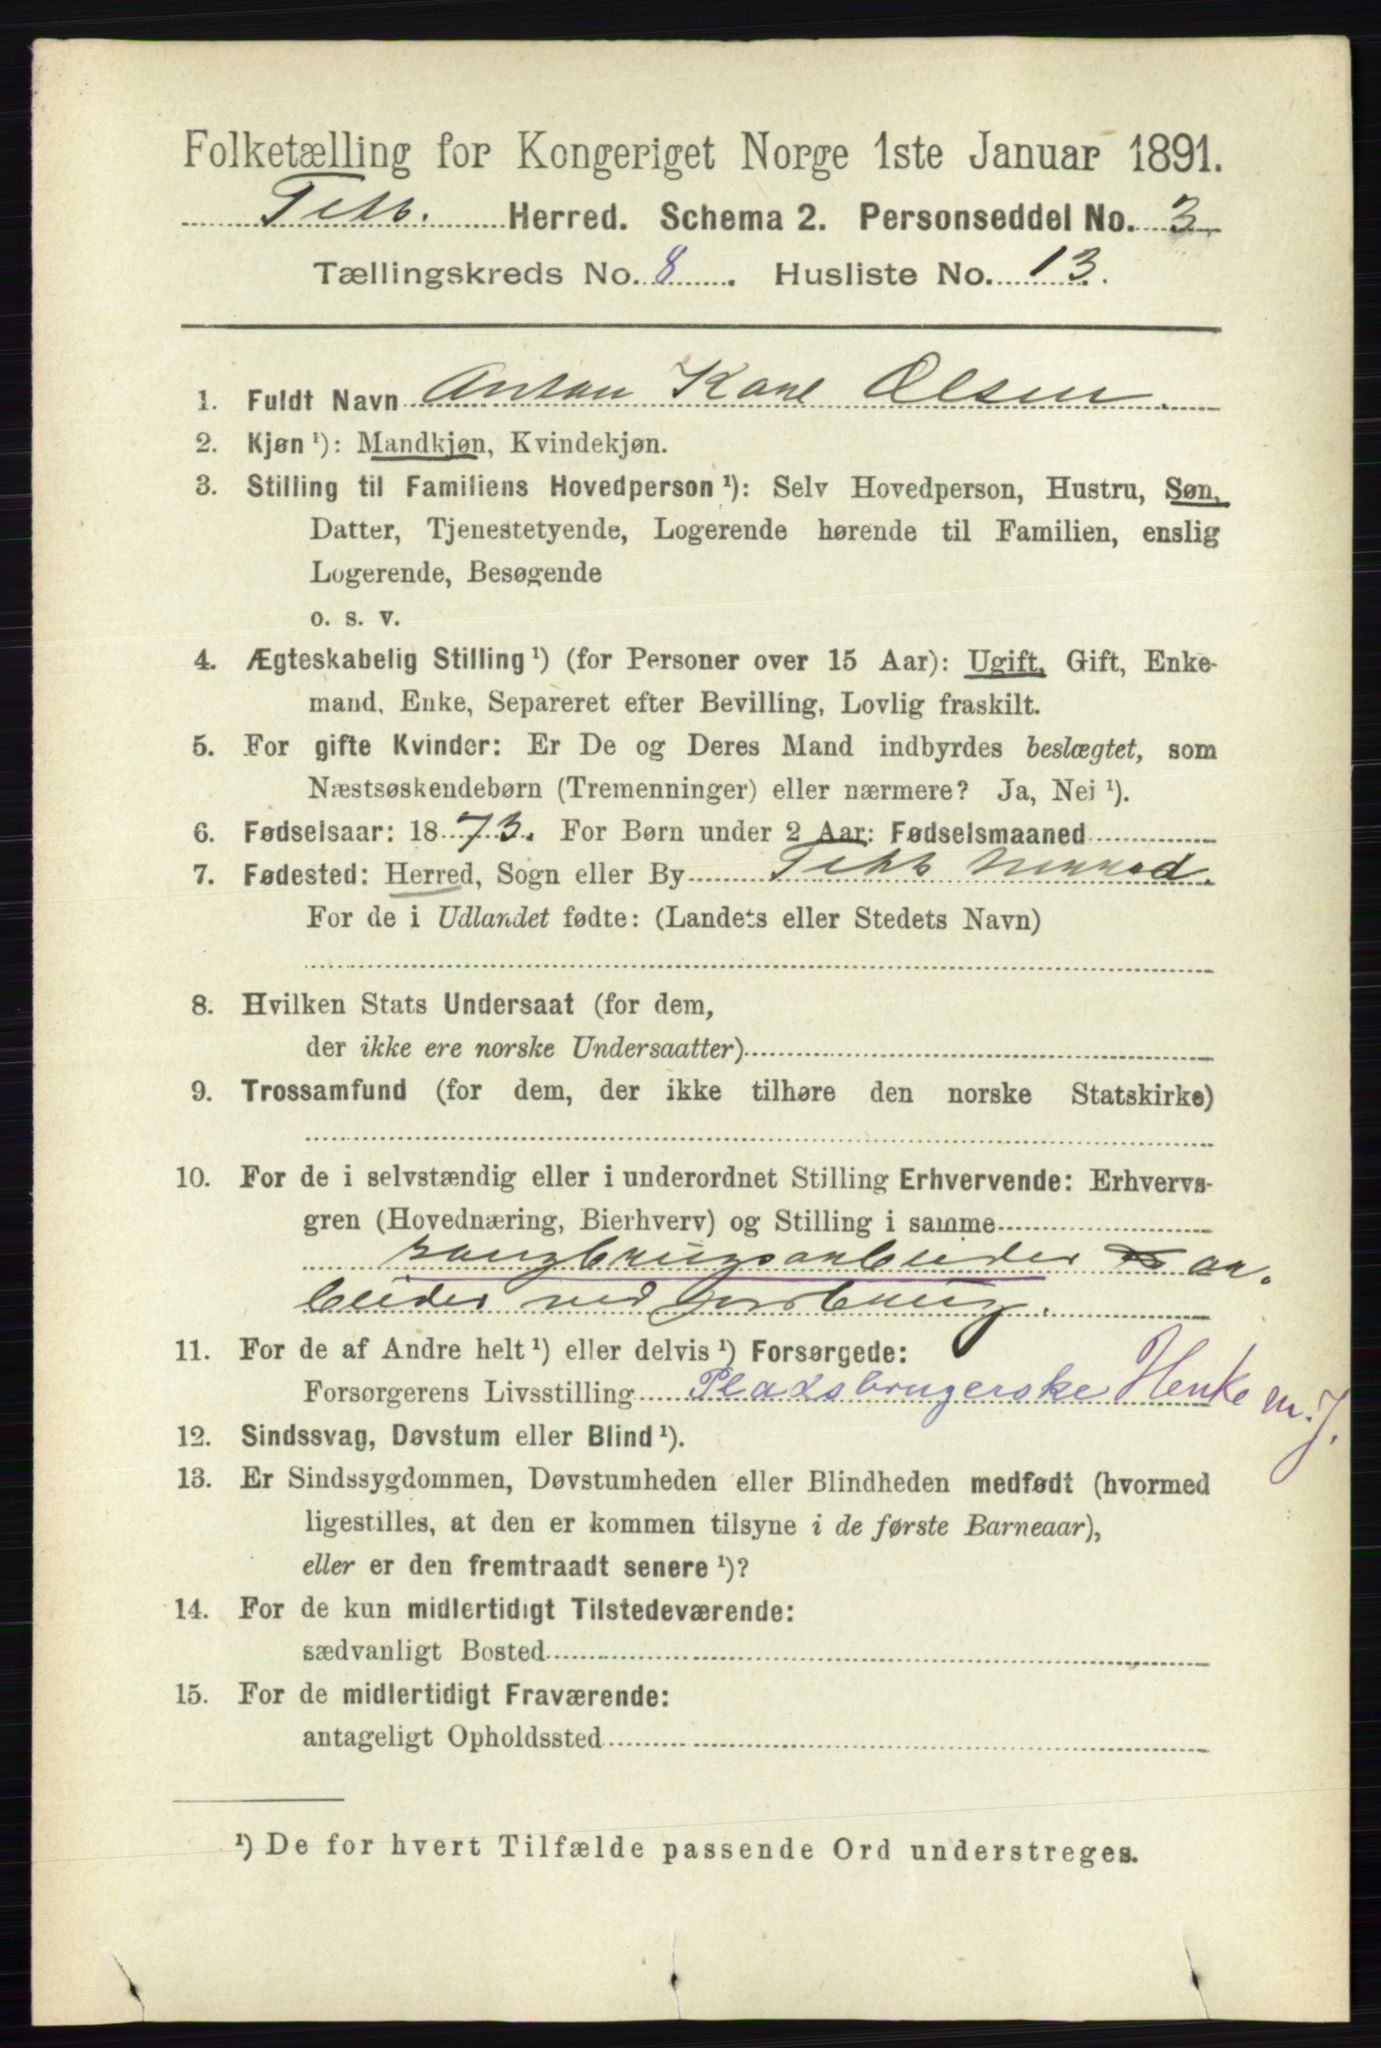 Folketælling for Kongeriget Norge 1ste Januar 1891.
Herred. Schema 2. Personseddel No. 3
Tællingskreds No. 8. Husliste No. 13.
1. Fuldt Navn Anton Karl Olsen.
2. Kjøn ¹): Mandkjøn, Kvindekjøn.
3. Stilling til Familiens Hovedperson ¹): Selv Hovedperson, Hustru, Søn,
Datter, Tjenestetyende, Logerende hørende til Familien, enslig
Logerende, Besøgende
o. s. v.
4. Ægteskabelig Stilling ¹) (for Personer over 15 Aar): Ugift, Gift, Enke-
mand, Enke, Separeret efter Bevilling, Lovlig fraskilt.
5. For gifte Kvinder: Er De og Deres Mand indbyrdes beslægtet, som
Næstsøskendebørn (Tremenninger) eller nærmere? Ja, Nei ¹).
6. Fødselsaar: 1873. For Børn under 2 Aar: Fødselsmaaned
7. Fødested: Herred, Sogn eller By
For de i Udlandet fødte: (Landets eller Stedets Navn)
8. Hvilken Stats Undersaat (for dem,
der ikke ere norske Undersaatter)
9. Trossamfund (for dem, der ikke tilhøre den norske Statskirke)
10. For de i selvstændig eller i underordnet Stilling Erhvervende: Erhvervs-
gren (Hovednæring, Bierhverv) og Stilling i samme
ar-
beider ved Jordbrug.
11. For de af Andre helt ¹) eller delvis ¹) Forsørgede:
Forsørgerens Livsstilling Pladsbrugerske Henke m. J.
12. Sindssvag, Døvstum eller Blind ¹).
13. Er Sindssygdommen, Døvstumheden eller Blindheden medfødt (hvormed
ligestilles, at den er kommen tilsyne i de første Barneaar),
eller er den fremtraadt senere ¹)?
14. For de kun midlertidigt Tilstedeværende:
sædvanligt Bosted
15. For de midlertidigt Fraværende:
antageligt Opholdssted
¹) De for hvert Tilfælde passende Ord understreges.